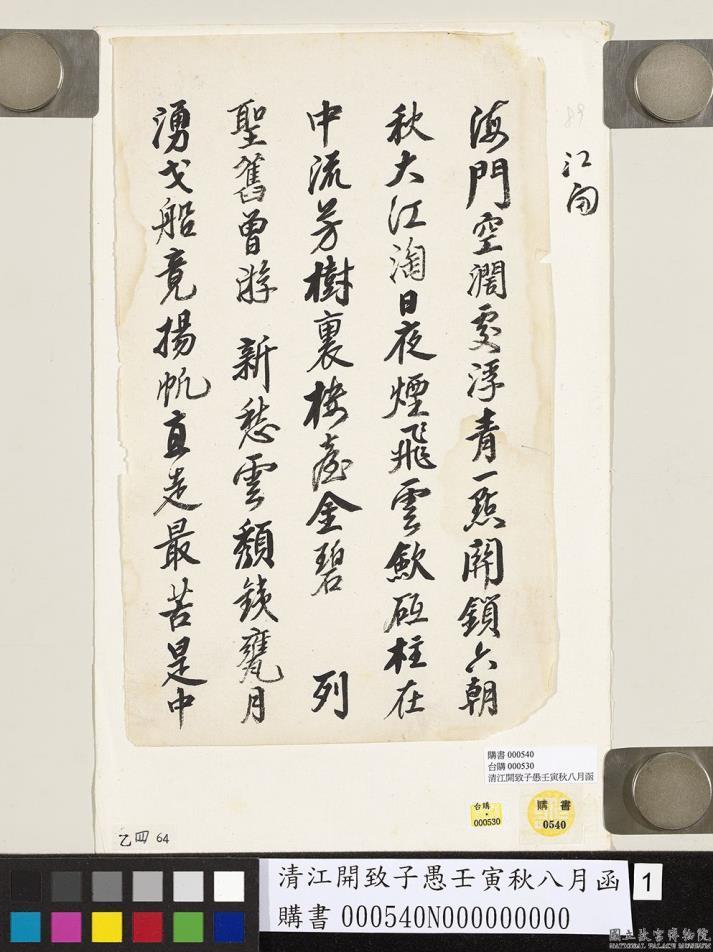 海門空濶處浮青一點關鎖六朝
秋大江淘日夜煙飛雲斂砥柱在
中流芳樹裏樓臺金碧 列
聖舊曾游 新愁雲頹鐵甕月
湧戈船竟揚帆直走最苦是中
89
購書 000540
台購 000530
清江開致子愚壬寅秋八月函
台購
000530
購書
0540
乙四 64
清江開致子愚壬寅秋八月函
購書 000540N000000000
1
國立故宮博物院
NATIONAL PALACE MUSEUM